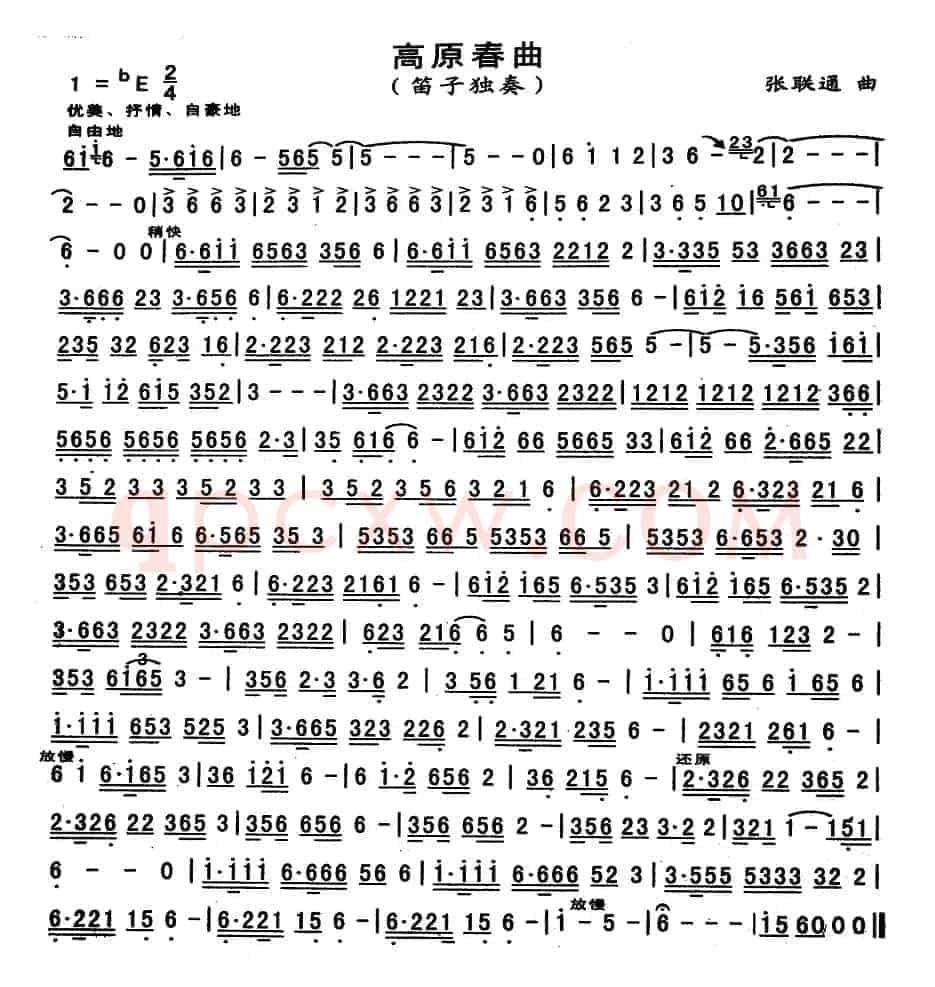 高原春曲
（笛子独奏）
1 = ᵇE 2/4
张联通 曲
优美、抒情、自豪地
自由地
6 i i 6 - 5·6i6|6 - 565 5|5 - - -|5 - - 0|6 i 1 2|3 6 - 23 2|2 - - -|
2 - - 0|3 6 6 3|2 3 1 2|3 6 6 3|2 3 1 6|5 6 2 3|3 6 5 10|61 6 - - -|
稍快
6 - 0 0|6·6ii 6563 356 6|6·6ii 6563 2212 2|3·335 53 3663 23|
3·666 23 3·656 6|6·222 26 1221 23|3·663 356 6 -|6i2 i6 56i 653|
235 32 623 16|2·223 212 2·223 216|2·223 565 5 -|5 - 5·356 i6i|
5·i i2 6i5 352|3 - - -|3·663 2322 3·663 2322|1212 1212 1212 366|
5656 5656 5656 2·3|35 616 6 -|6i2 66 5665 33|6i2 66 2·665 22|
3 5 2 3 3 5 2 3 3|3 5 2 3 5 6 3 2 1 6|6·223 21 2 6·323 21 6|
3·665 6i 6 6·565 35 3|5353 66 5 5353 66 5|5353 6·653 2·30|
353 653 2·321 6|6·223 2161 6 -|6i2 i65 6·535 3|6i2 i65 6·535 2|
3·663 2322 3·663 2322|623 216 6 5|6 - - 0|616 123 2 -|
353 6i65 3 -|356 2·3 3·6 2|3 56 1 21 6 -|i·iii 65 6 i 65 6|
i·iii 653 525 3|3·665 323 226 2|2·321 235 6 -|2321 261 6 -|
放慢
还原
6 i 6·i65 3|36 i2i 6 -|6 i·2 656 2|36 215 6 -|2·326 22 365 2|
2·326 22 365 3|356 656 6 -|356 656 2 -|356 23 3·2 2|321 1 - 151|
6 - - 0|i·iii 6·666 56 6|i·iii 6·666 52 3|3·555 5333 32 2|
放慢
6·221 15 6 -|6·221 15 6 -|6·221 15 6 -|i - 5 -|6 - - -|i5 60 0 0‖